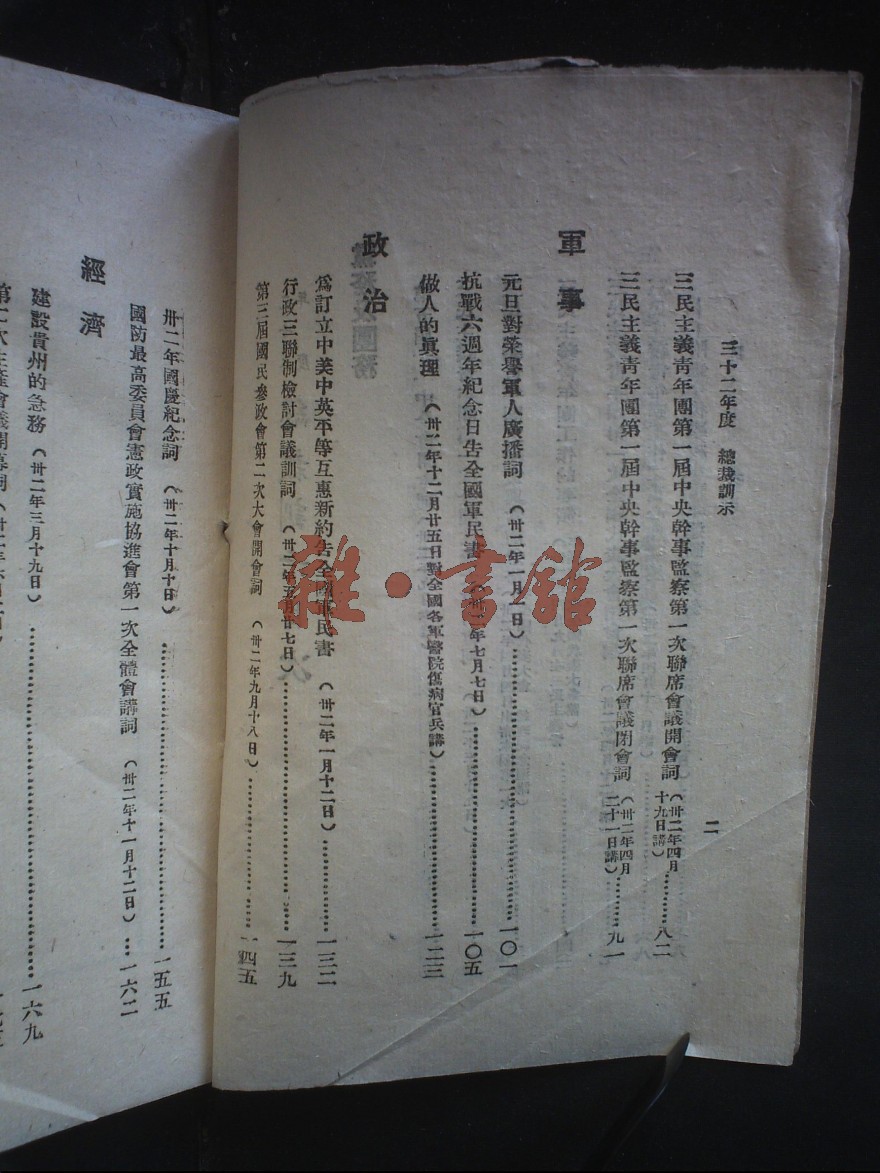 三十二年度　總裁訓示
二
三民主義青年團第一屆中央幹事監察第一次聯席會議開會詞（卅二年四月十九日講）…………八二
三民主義青年團第一屆中央幹事監察第一次聯席會議閉會詞（卅二年四月二十一日講）…………九一
軍事
元旦對榮譽軍人廣播詞（卅二年一月一日）…………一〇一
抗戰六週年紀念日告全國軍民書（卅二年七月七日）…………一〇五
做人的眞理（卅二年十二月廿五日對全國各軍醫院傷病官兵講）…………一二三
政治
爲訂立中美中英平等互惠新約告全國軍民書（卅二年一月十二日）…………一三二
行政三聯制檢討會議訓詞（卅二年五月廿七日）…………一三九
第三屆國民參政會第二次大會開會詞（卅二年九月十八日）…………一四五
卅二年國慶紀念詞（卅二年十月十日）…………一五五
國防最高委員會憲政實施協進會第一次全體會講詞（卅二年十一月十二日）…一六二
經濟
建設貴州的急務（卅二年三月十九日）…………一六九
雜·書館